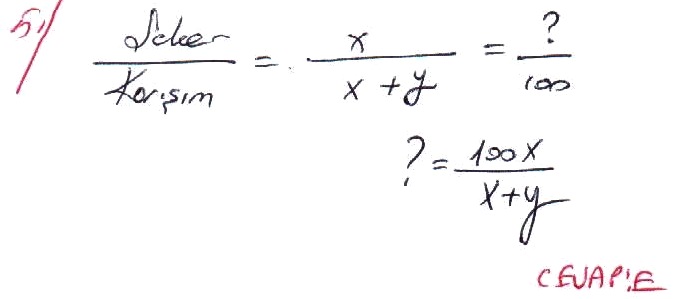 51/ Şeker/Karışım = x/(x+y) = ?/100
? = 100x/(x+y)
CEVAP:E